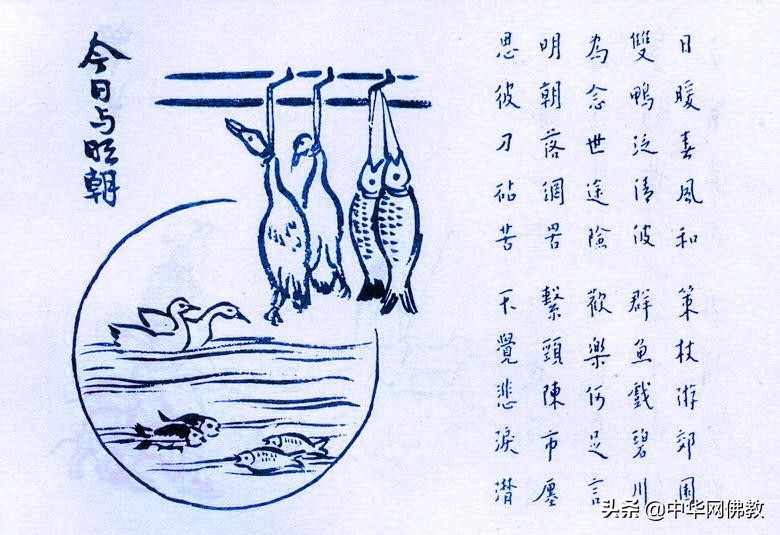 今日与明朝
日暖春風和 策杖游郊園
雙鴨泛清波 群魚戲碧川
為念世途險 歡樂何足言
明朝落網罟 繫頸陳市廛
思彼刀砧苦 不覺悲淚潸
头条 @中华网佛教